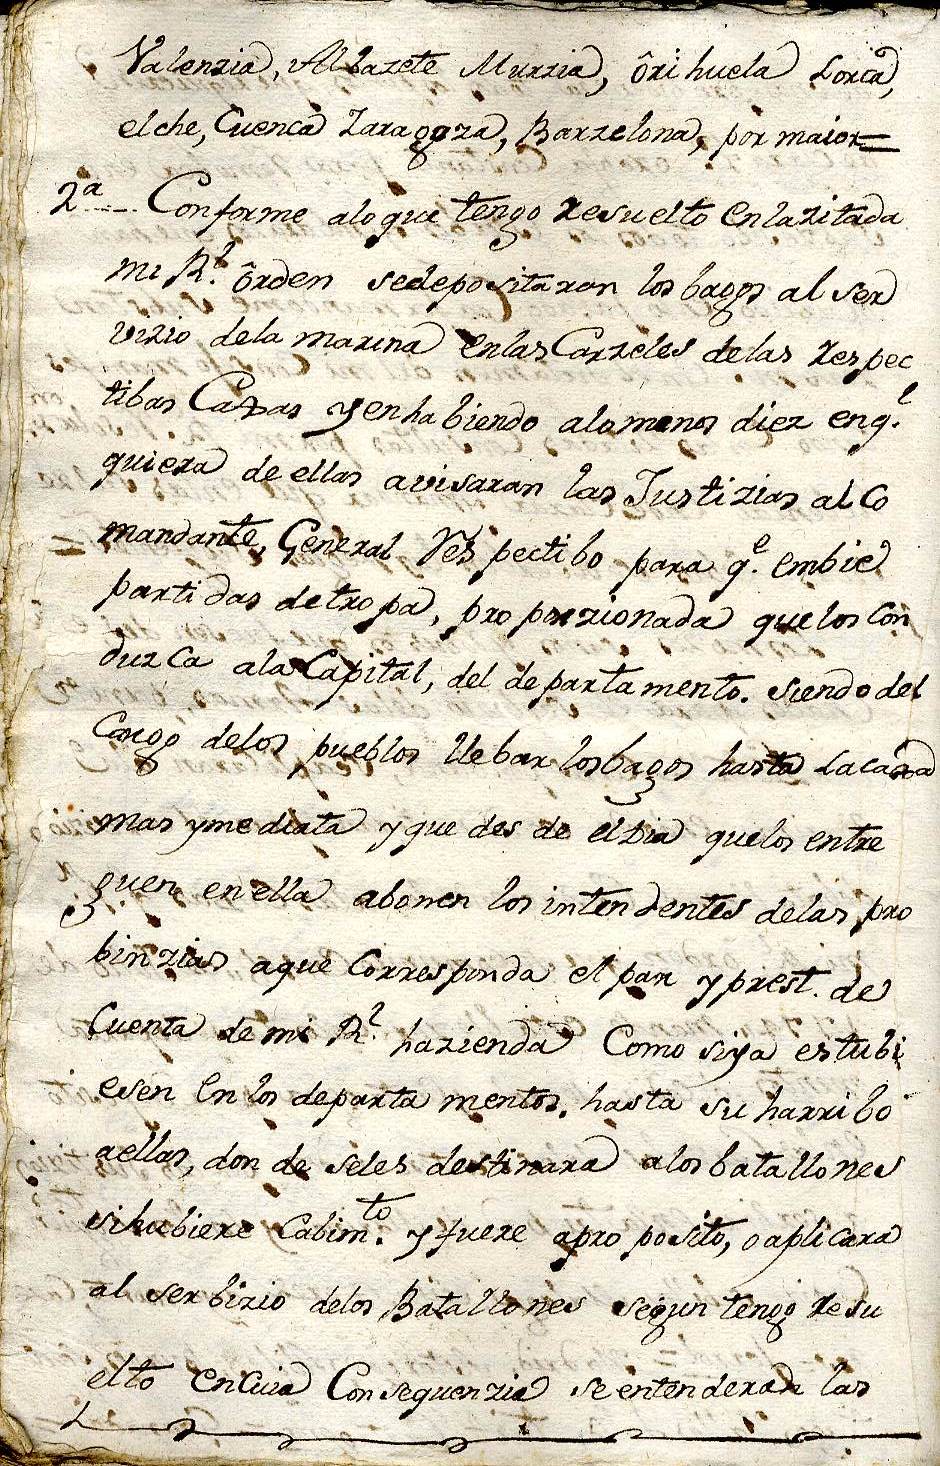 Valenzia, Albazete Murzia, ôrihuela Lorca,
elche, Cuenca Zaragoza, Barzelona, por maior=
2ª Conforme alo que tengo resuelto en la zitada
mi Rl. ôrden sedepositaran los bagos al ser
vizio dela marina en las Carzeles de las respec
tibas Caxas y en habiendo alomenos diez en ql.
quiera de ellas avisaran las Justizias al Co
mandante, General Respectibo para qe. embie
partidas detropa, proporzionada que los con
duzca ala Capital, del departamento. siendo del
Cargo delos pueblos llebar los bagos hasta la caxa
mas ymediata y que des de el Dia quelos entre
guen en ella abonen los intendentes delas pro
binzias aque Corresponda el pan y prest. de
Cuenta de mi Rl. hazienda Como si ya estubi
esen en los departamentos. hasta su harribo
aellas, don de seles destinara alos batallones
si hubiere Cabimto. y fuere apro posito, o aplicara
al serbizio delos Batallones segun tengo resu
elto en Cuia Consequenzia se entenderan las